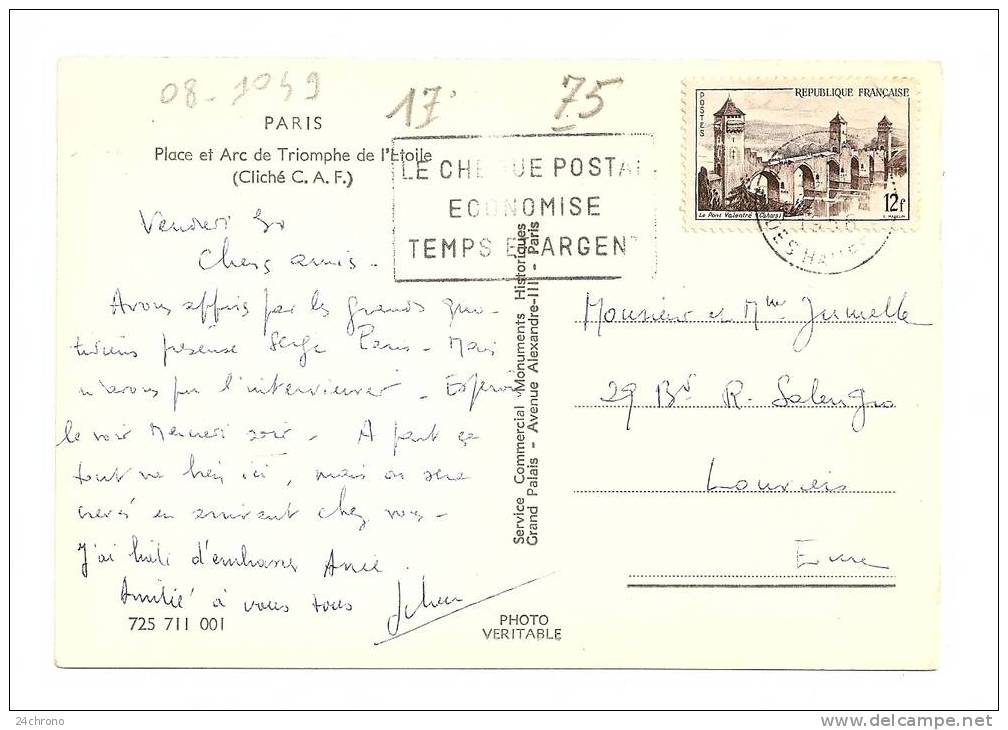 08-1049
17
75
PARIS
Place et Arc de Triomphe de l'Etoile
(Cliché C. A. F.)
LE CHEQUE POSTAL
ECONOMISE
TEMPS ET ARGENT
POSTES
REPUBLIQUE FRANÇAISE
Le Pont Valentré (Cahors)
12f
1956
DES HALLES
Vendredi 30
Chers amis.
Avons appris par les grands quo-
tidiens présence Serge Paris - Mais
n'avons pu l'interviewer - Espérons
le voir Mercredi soir - A part ça
tout va bien ici, mais on sera
crevés en arrivant chez vous -
J'ai hâte d'embrasser
Amitié à vous tous
725 711 001
Service Commercial Monuments Historiques
Grand Palais - Avenue Alexandre-III - Paris
PHOTO
VERITABLE
Monsieur et Mme Jumelle
29 Bd R. Salengro
Louviers
Eure
24chrono
www.delcampe.net